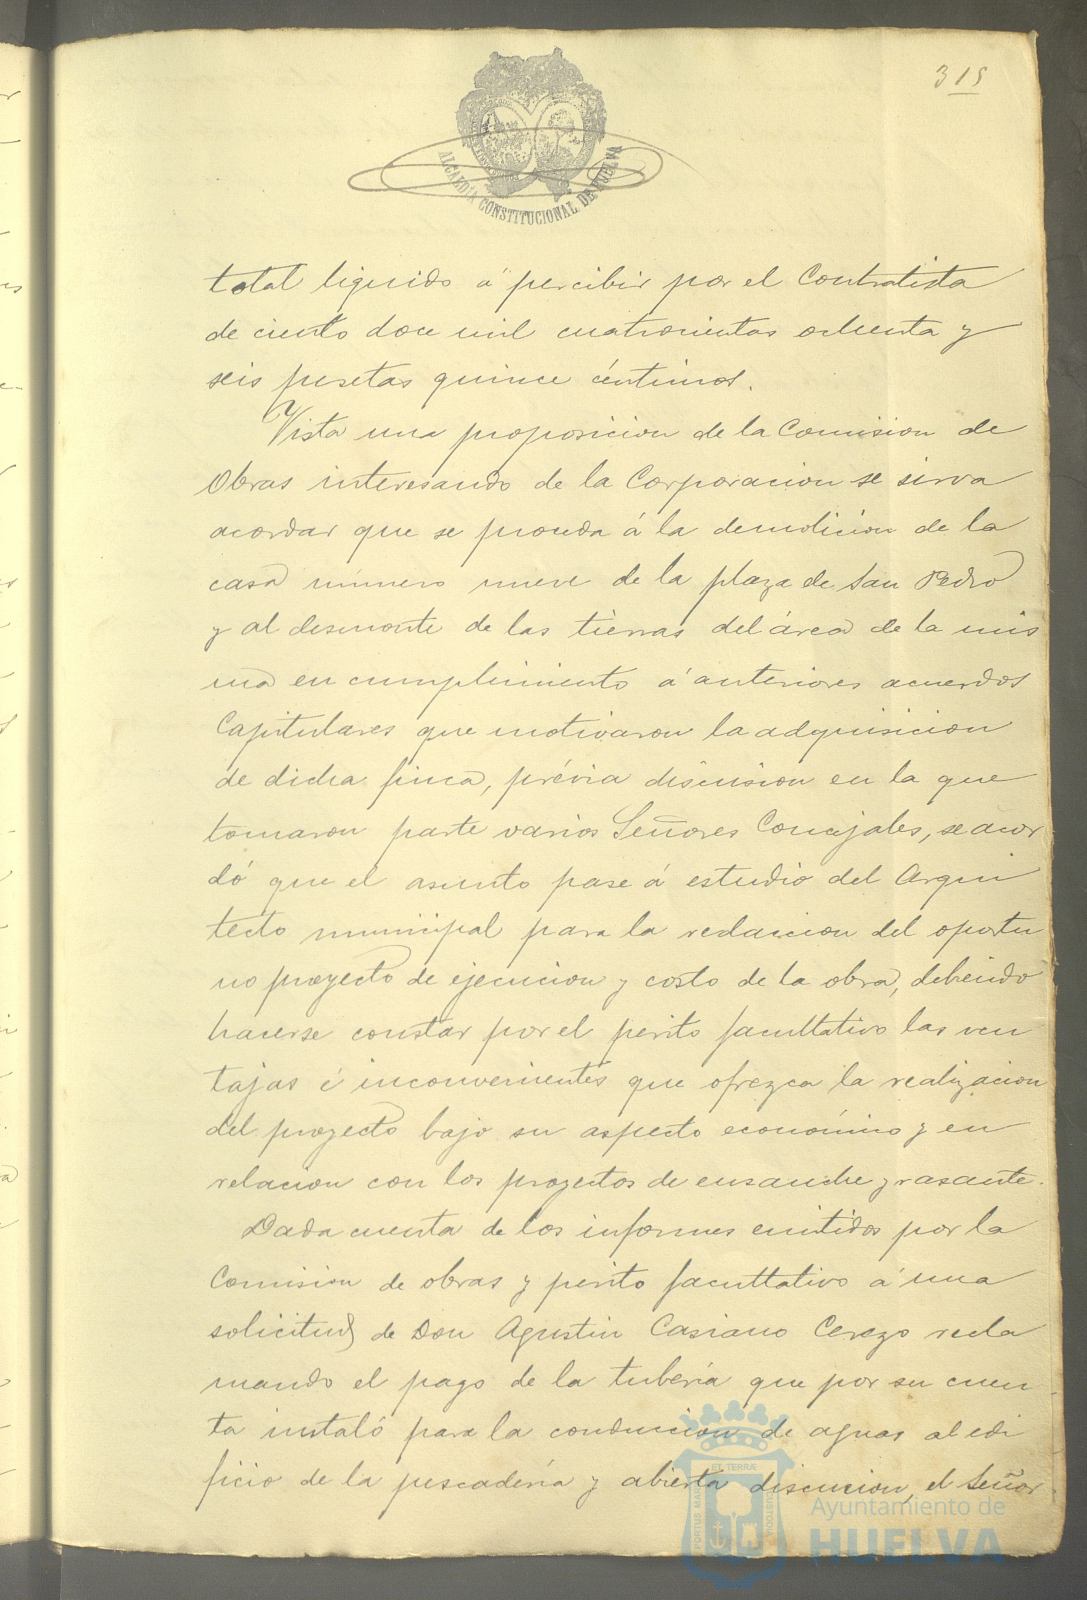 315
ALCALDÍA CONSTITUCIONAL DE HUELVA
total liquido á percibir por el Contratista
de ciento doce mil cuatrocientas ochenta y
seis pesetas quince céntimos.
Vista una proposicion de la Comision de
Obras interesando de la Corporacion se sirva
acordar que se proceda á la demolicion de la
casa número nueve de la plaza de San Pedro
y al desmonte de las tierras del área de la mis
ma en cumplimiento á anteriores acuerdos
Capitulares que motivaron la adquisicion
de dicha finca, prévia discusion en la que
tomaron parte varios Señores Concejales, se acor
dó que el asunto pase á estudio del Arqui
tecto municipal para la redaccion del oportu
no proyecto de ejecucion y costo de la obra, debiendo
hacerse constar por el perito facultativo las ven
tajas é inconvenientes que ofrezca la realizacion
del proyecto bajo su aspecto económico y en
relacion con los proyectos de ensanche y rasante.
Dada cuenta de los informes emitidos por la
Comision de obras y perito facultativo á una
solicitud de Don Agustin Casiano Cerezo recla
mando el pago de la tubería que por su cuen
ta instaló para la conduccion de aguas al edi
ficio de la pescadería y abierta discucion, el Señor
ET TERRÆ
PORTUS MARIS
CUSTODIA
Ayuntamiento de
HUELVA